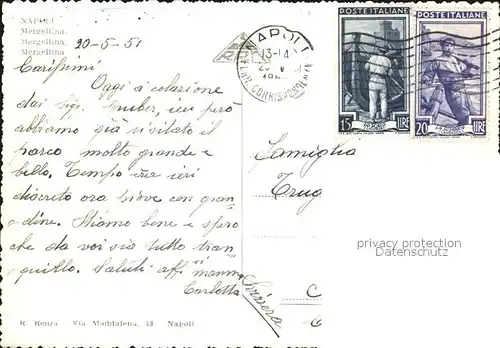 NAPOLI
Mergellina.
Mergellina.
Mergellina.
20-5-51
Carissimi
Oggi a colazione
dai sigg. Huber, ieri però
abbiamo già visitato il
parco molto grande e
bello, Tempo fine ieri
discreto ora piove con gran-
dine. Stiamo bene e spero
che da voi sia tutto tran-
quillo. Saluti aff. mamma
Carlotta
R. Renza Via Maddalena, 43 Napoli
NAPOLI
13-14
CORRISPONDENZE
POSTE ITALIANE
15 LIRE
POSTE ITALIANE
20 LIRE
Famiglia
Trug
Svizzera
privacy protection
Datenschutz